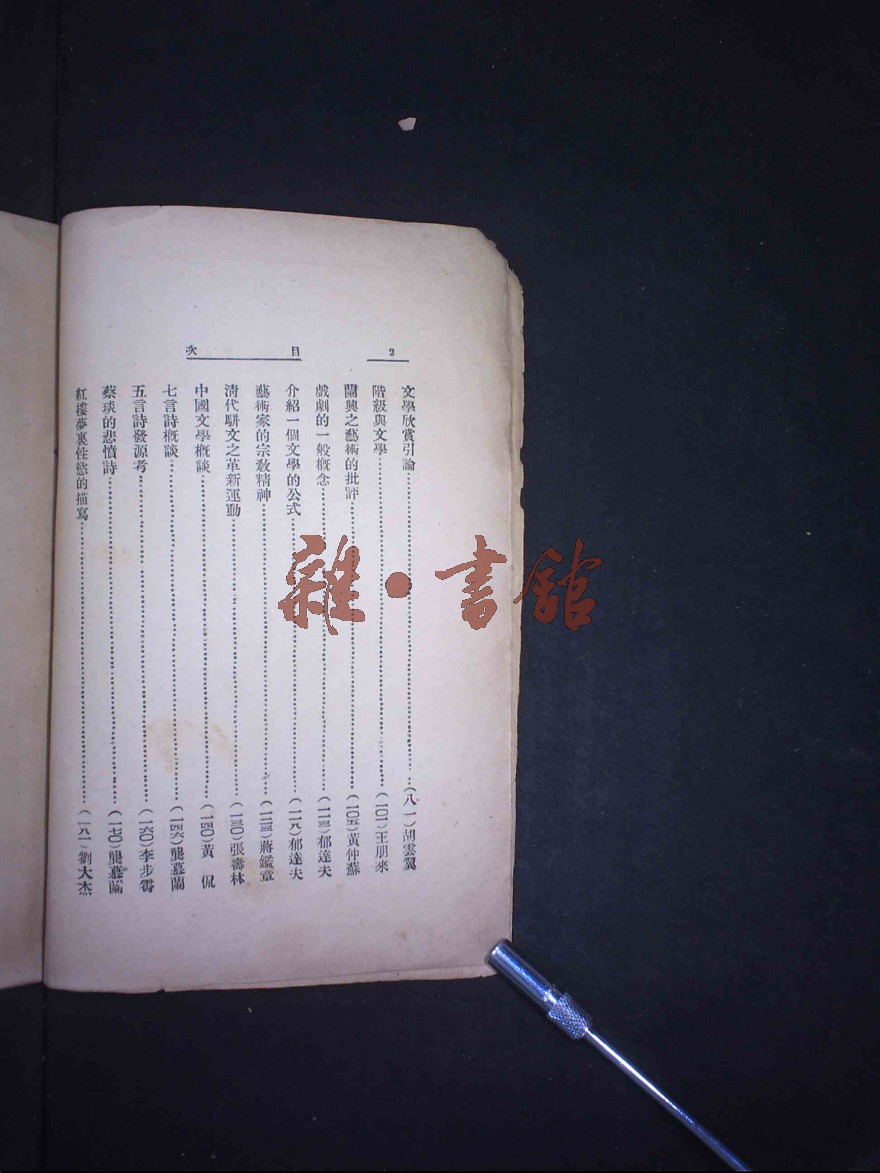 2
目次
文學欣賞引論……(八一)胡雲翼
階級與文學……(一〇一)王朋來
關與之藝術的批評……(一〇五)黃仲蘇
戲劇的一般槪念……(一一三)郁達夫
介紹一個文學的公式……(一一八)郁達夫
藝術家的宗敎精神……(一二三)蔣鑑章
淸代駢文之革新運動……(一三〇)張壽林
中國文學槪談……(一四〇)黃 侃
七言詩槪談……(一四六)龔慕蘭
五言詩發源考……(一六〇)李步霽
蔡琰的悲憤詩……(一七〇)龔慕蘭
紅樓夢裏性慾的描寫……(一八一)劉大杰
雜·書館